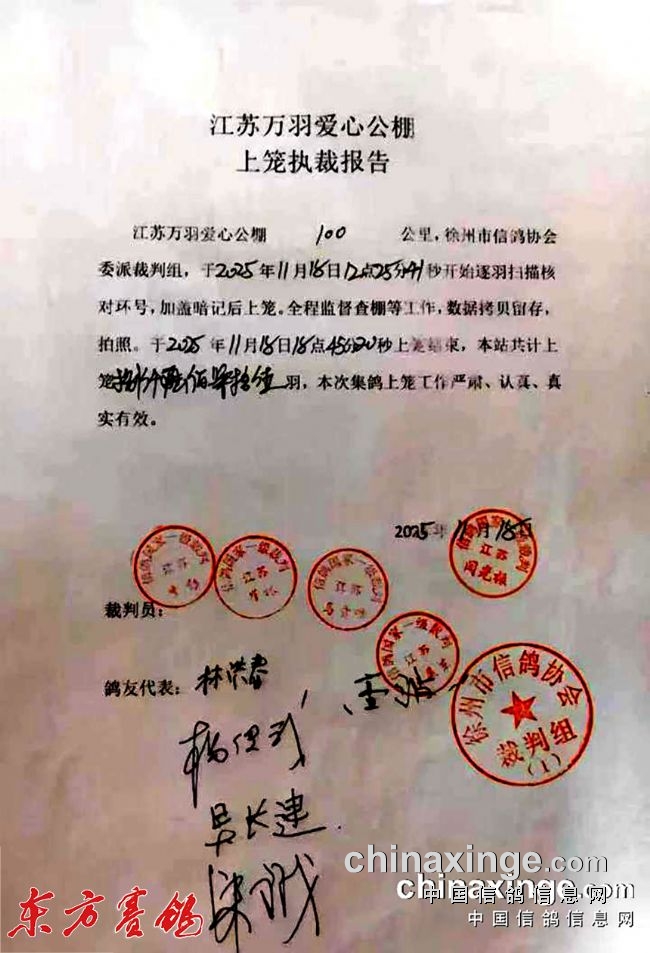 江苏万羽爱心公棚
上笼执裁报告
江苏万羽爱心公棚 100 公里，徐州市信鸽协会
委派裁判组，于2025年11月18日12点25分41秒开始逐羽扫描核
对环号，加盖暗记后上笼。全程监督查棚等工作，数据拷贝留存，
拍照。于2025年11月18日18点45分20秒上笼结束，本站共计上
笼 羽，本次集鸽上笼工作严肃、认真、真
实有效。
2025年11月18日
信鸽国家一级裁判
江苏
信鸽国家一级裁判
江苏
信鸽国家一级裁判
江苏
信鸽国家一级裁判
江苏
裁判员：
信鸽国家一级裁判
江苏
鸽友代表：林洪春
徐州市信鸽协会
裁判组
(1)
吴长连
chinaxinge.com
中国信鸽信息网
chinaxinge.com
中国信鸽信息网
东方赛鸽